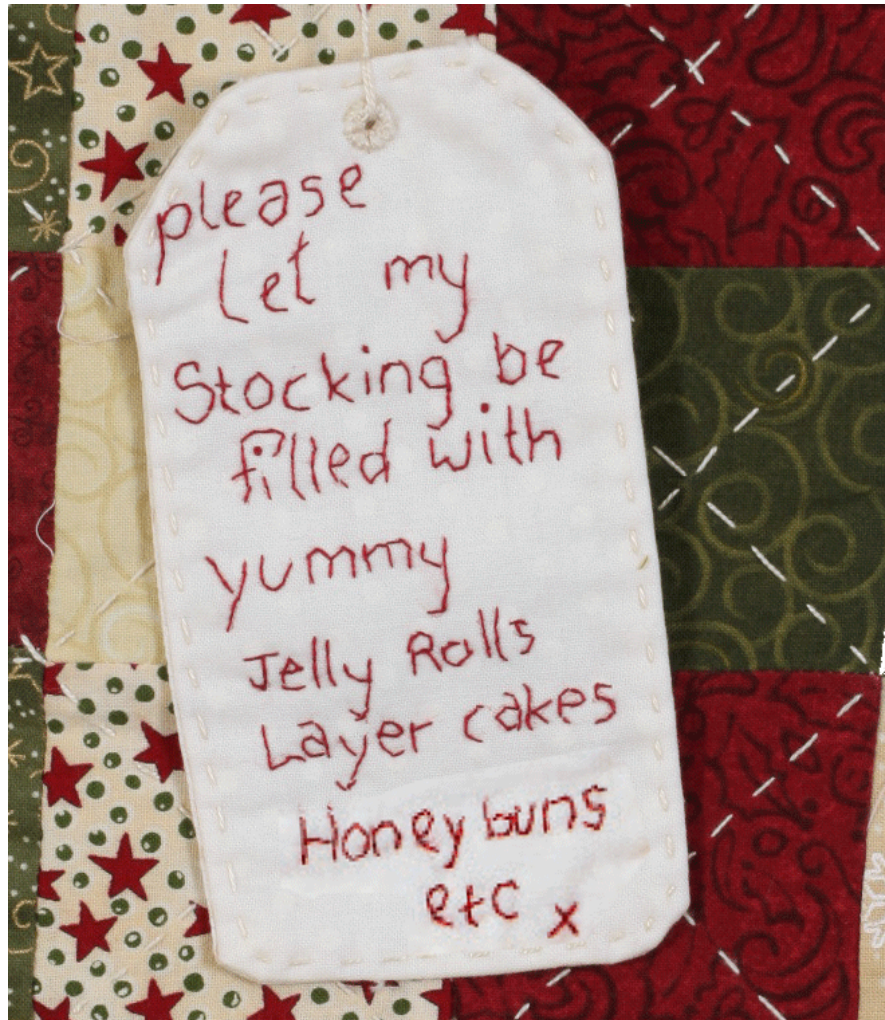 please
let my
Stocking be
filled with
yummy
Jelly Rolls
Layer cakes
Honey buns
etc x